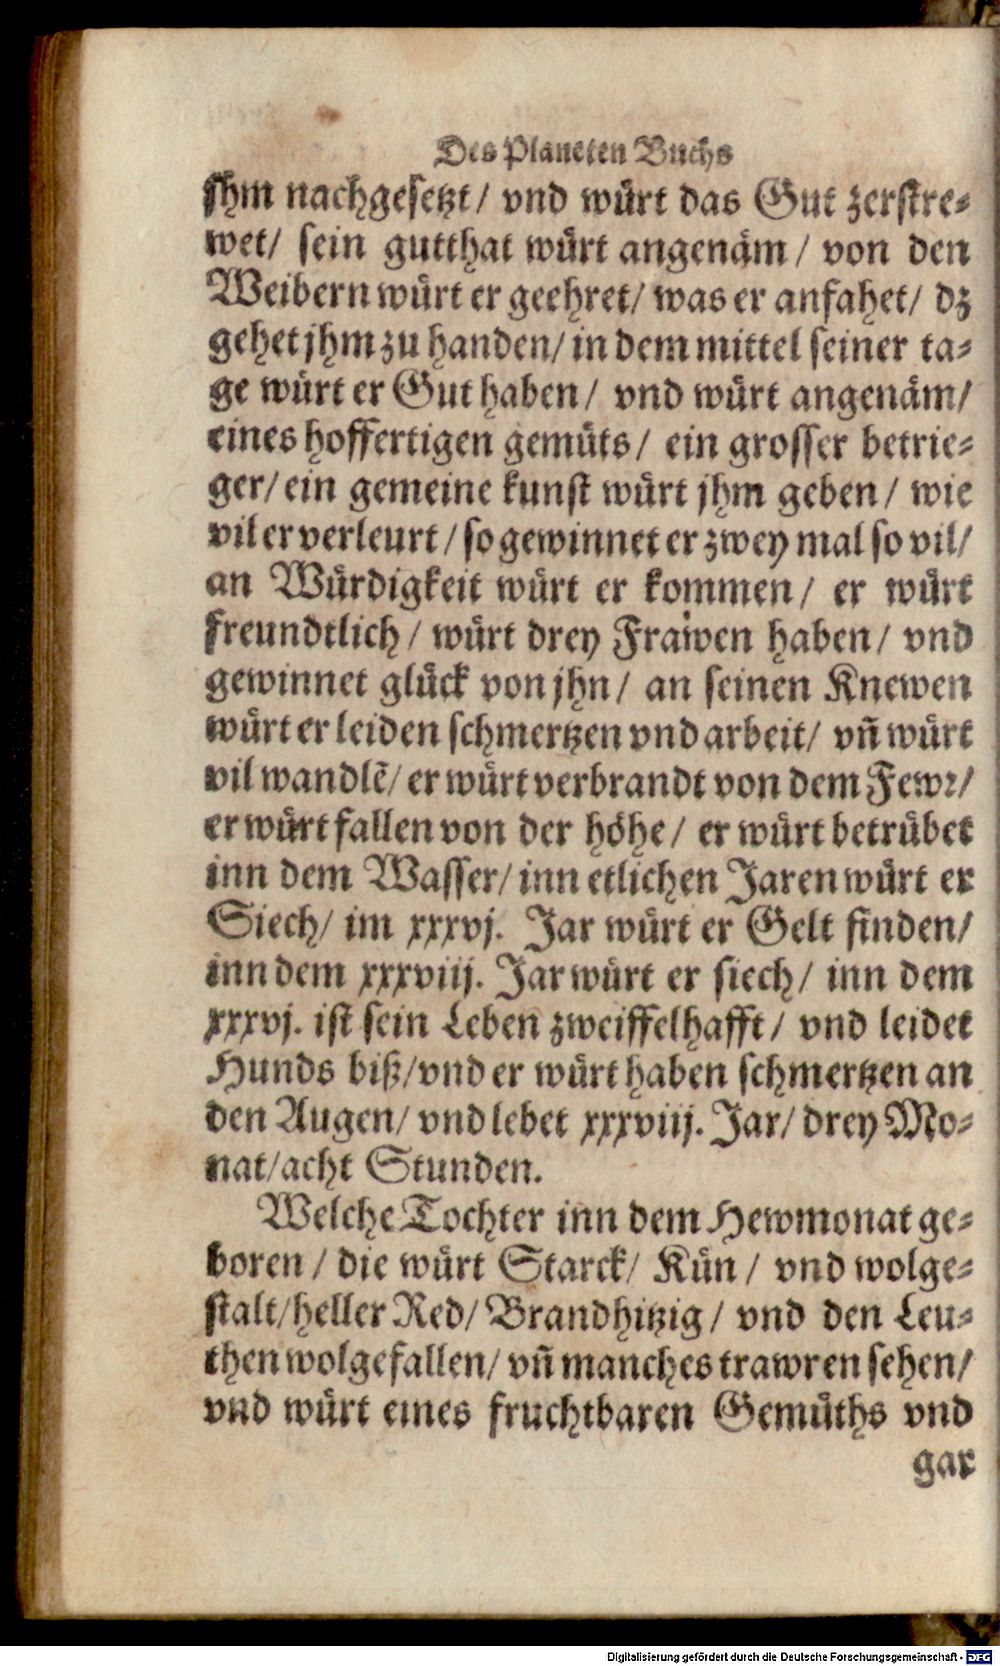 Des Planeten Buchs
jhm nachgesetzt/ vnd würt das Gut zerstre⸗
wet/ sein gutthat würt angenäm/ von den
Weibern würt er geehret/ was er anfahet/ dz
gehet jhm zu handen/ in dem mittel seiner ta⸗
ge würt er Gut haben/ vnd würt angenäm/
eines hoffertigen gemüts/ ein grosser betrie⸗
ger/ ein gemeine kunst würt jhm geben/ wie
vil er verleurt/ so gewinnet er zwey mal so vil/
an Würdigkeit würt er kommen/ er würt
freundtlich/ würt drey Frawen haben/ vnd
gewinnet glück von jhn/ an seinen Knewen
würt er leiden schmertzen vnd arbeit/ vñ würt
vil wandlē/ er würt verbrandt von dem Fewr/
er würt fallen von der höhe/ er würt betrübet
inn dem Wasser/ inn etlichen Jaren würt er
Siech/ im xxxvj. Jar würt er Gelt finden/
inn dem xxxviij. Jar würt er siech/ inn dem
xxxvj. ist sein Leben zweiffelhafft/ vnd leidet
Hunds biß/ vnd er würt haben schmertzen an
den Augen/ vnd lebet xxxviij. Jar/ drey Mo⸗
nat/ acht Stunden.
Welche Tochter inn dem Hewmonat ge⸗
boren/ die würt Starck/ Kün/ vnd wolge⸗
stalt/ heller Red/ Brandhitzig/ vnd den Leu⸗
then wolgefallen/ vñ manches trawren sehen/
vnd würt eines fruchtbaren Gemüths vnd
gar
Digitalisierung gefördert durch die Deutsche Forschungsgemeinschaft - DFG